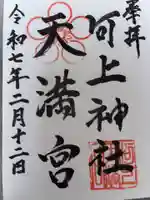 奉拝
河上神社
天満宮
令和七年二月十二日